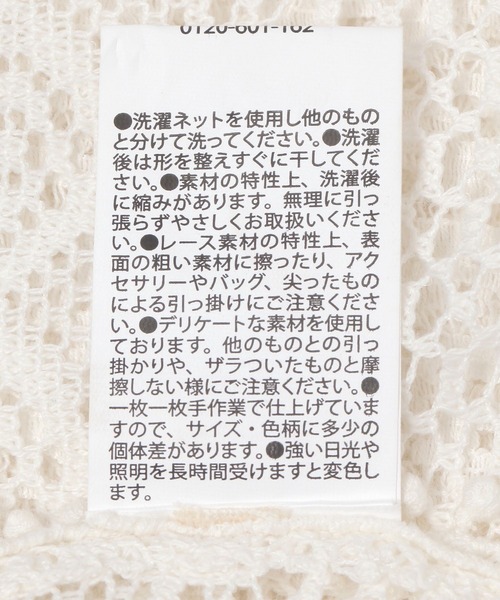 0120-601-162
●洗濯ネットを使用し他のもの
と分けて洗ってください。●洗濯
後は形を整えすぐに干してくだ
さい。●素材の特性上、洗濯後
に縮みがあります。無理に引っ
張らずやさしくお取扱いくださ
い。●レース素材の特性上、表
面の粗い素材に擦ったり、アク
セサリーやバッグ、尖ったもの
による引っ掛けにご注意くださ
い。●デリケートな素材を使用し
ております。他のものとの引っ
掛かりや、ザラついたものと摩
擦しない様にご注意ください。●
一枚一枚手作業で仕上げていま
すので、サイズ・色柄に多少の
個体差があります。●強い日光や
照明を長時間受けますと変色し
ます。